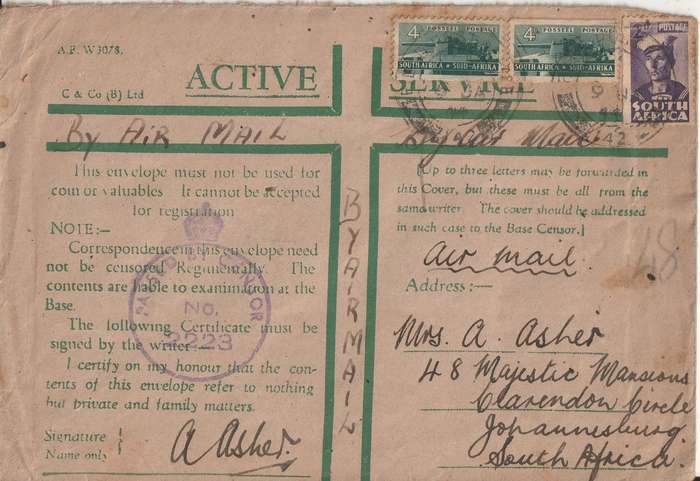 A.F. W3078.
C & Co (B) Ltd
ACTIVE SERVICE
4 POSSEEL POSTAGE
SOUTH AFRICA ★ SUID-AFRIKA
4 POSSEEL POSTAGE
SOUTH AFRICA ★ SUID-AFRIKA
POSTAGE
SOUTH AFRICA
42
By AIR MAIL
This envelope must not be used for
coin or valuables It cannot be accepted
for registration
NOTE:—
Correspondence in this envelope need
not be censored Regimentally. The
contents are liable to examination at the
Base.
The following Certificate must be
signed by the writer
I certify on my honour that the con-
tents of this envelope refer to nothing
but private and family matters.
Signature
Name only
A Asher.
PASSED BY CENSOR
No.
2223
BY AIR MAIL
By Air Mail
[Up to three letters may be forwarded in
this Cover, but these must be all from the
same writer. The cover should be addressed
in such case to the Base Censor.]
Air mail.
48
Address :—
Mrs. A. Asher
48 Majestic Mansions
Clarendon Circle
Johannesburg
South Africa.